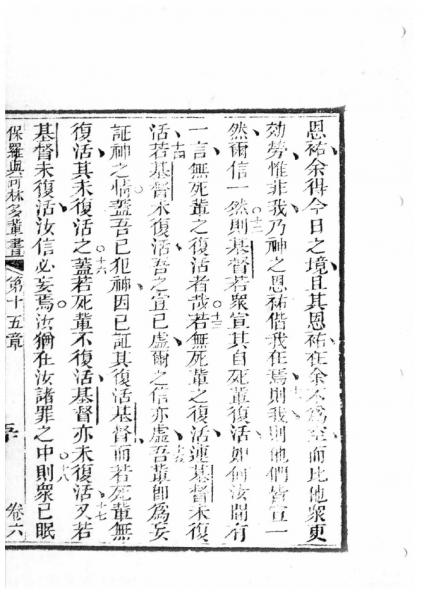 恩祐余得今日之境且其恩祐在余不爲空而比他衆更
効勞惟非我乃神之恩祐偕我在焉則我則他們皆宣一
然爾信一然則十二基督若衆宣其自死輩復活如何汝間有
一言無死輩之復活者哉若十三無死輩之復活連基督未復
活十四若基督未復活吾之宣已虛爾之信亦虛吾十五輩即爲妄
証神之情蓋吾已犯神因已証其復活基督而若死輩無
復活其未復活之十六蓋若死輩不復活基督亦未復活十七又若
基督未復活汝信必妄焉汝猶在汝諸罪之中則十八衆已眠
保羅與可林多輩書 第十五章 卷六